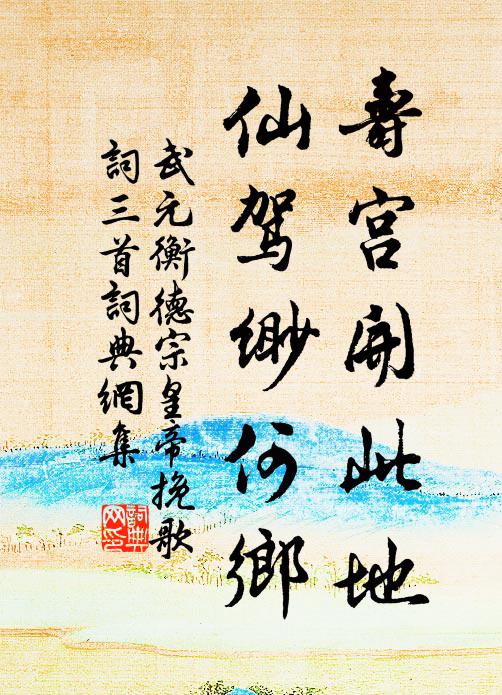 壽宮開此地
仙駕緲何鄉
武元衡德宗皇帝挽歌
詞三首詞典網集